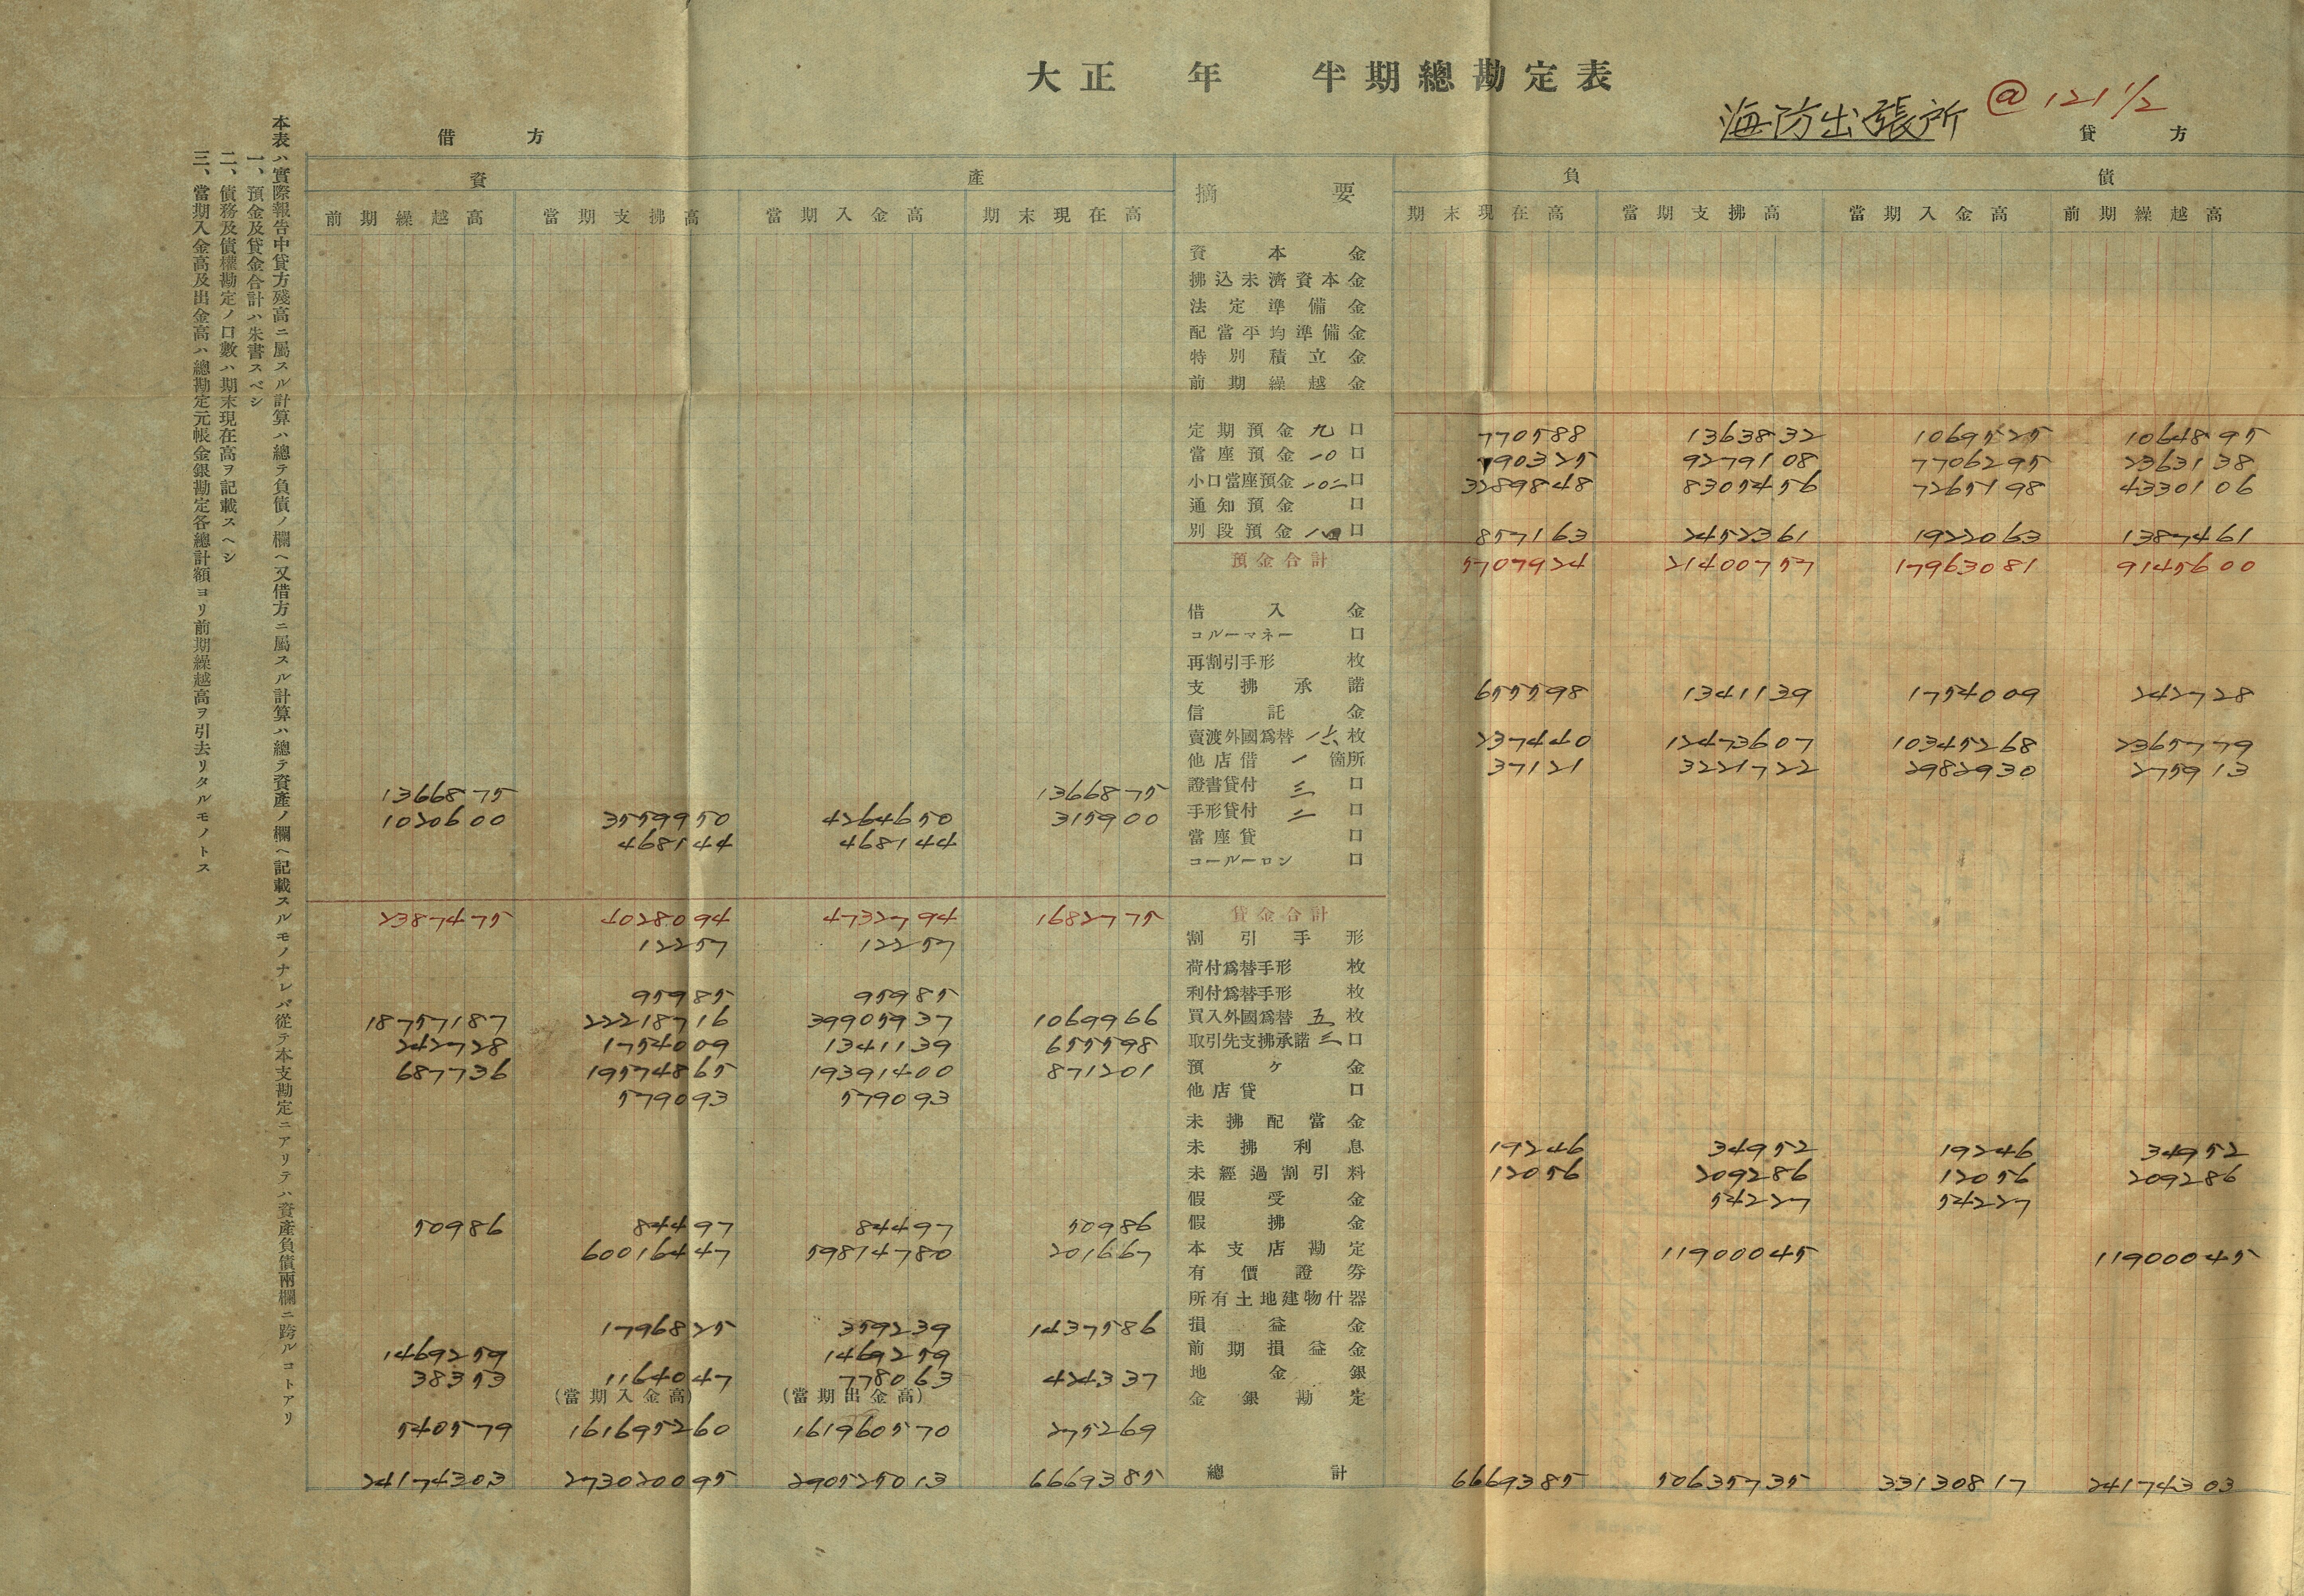 大正 年 半期總勘定表
海防出張所 @121 1/2
借方 貸方
資產 摘要 負債
前期繰越高 當期支拂高 當期入金高 期末現在高 期末現在高 當期支拂高 當期入金高 前期繰越高
資本金
拂込未濟資本金
法定準備金
配當平均準備金
特別積立金
前期繰越金
定期預金 九 口 770588 1363832 1069525 1064895
當座預金 一〇 口 790325 9279108 7706295 2363138
小口當座預金 一〇二 口 3289848 8305456 7265198 4330106
通知預金 口
別段預金 一四 口 857163 2452361 1922063 1387461
預金合計 5707924 21400757 17963081 9145600
借入金
コルーマネー 口
再割引手形 枚
支拂承諾 655598 1341139 1754009 242728
信託金
賣渡外國爲替 一六 枚 237440 12473607 10345268 2365779
他店借 一 箇所 37121 3221722 2982930 275913
1366875 1366875 證書貸付 三 口
1020600 3559950 4264650 315900 手形貸付 二 口
468144 468144 當座貸 口
コールーロン 口
2387475 4028094 4732794 1682775 貸金合計
12257 12257 割引手形
荷付爲替手形 枚
95985 95985 利付爲替手形 枚
18757187 22218716 39905937 1069966 買入外國爲替 五 枚
242728 1754009 1341139 655598 取引先支拂承諾 三 口
687736 19574865 19391400 871201 預ケ金
579093 579093 他店貸 口
未拂配當金
未拂利息 19246 34952 19246 34952
未經過割引料 12056 209286 12056 209286
假受金 54227 54227
50986 84497 84497 50986 假拂金
60016447 59814780 201667 本支店勘定 11900045 11900045
有價證券
所有土地建物什器
1796825 359239 1437586 損益金
1469259 1469259 前期損益金
38353 1164047 778063 424337 地金銀
(當期入金高) (當期出金高) 金銀勘定
540579 161695260 161960570 275269
24174303 273020095 290525013 6669385 總計 6669385 50635735 33130817 24174303
本表ハ實際報告中貸方殘高ニ屬スル計算ハ總テ負債ノ欄ヘ又借方ニ屬スル計算ハ總テ資產ノ欄ヘ記載スルモノナレバ從テ本支勘定ニアリテハ資產負債兩欄ニ跨ルコトアリ
一、預金及貸金合計ハ朱書スベシ
二、債務及債權勘定ノ口數ハ期末現在高ヲ記載スヘシ
三、當期入金高及出金高ハ總勘定元帳金銀勘定各總計額ヨリ前期繰越高ヲ引去リタルモノトス